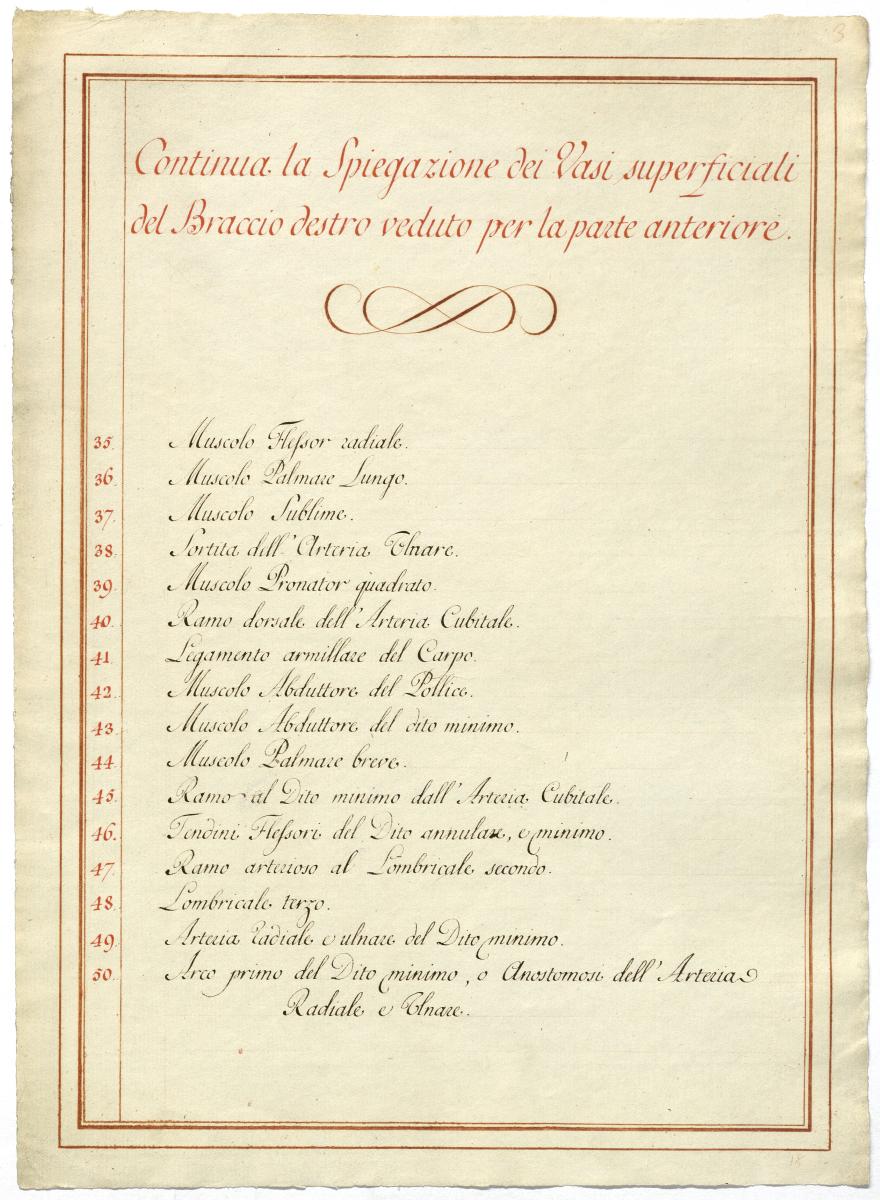 3
Continua la Spiegazione dei Vasi superficiali
del Braccio destro veduto per la parte anteriore.
35. Muscolo Flessor radiale.
36. Muscolo Palmare Lungo.
37. Muscolo Sublime.
38. Sortita dell'Arteria Ulnare.
39. Muscolo Pronator quadrato.
40. Ramo dorsale dell'Arteria Cubitale.
41. Legamento armillare del Carpo.
42. Muscolo Abduttore del Pollice.
43. Muscolo Abduttore del dito minimo.
44. Muscolo Palmare breve.
45. Ramo al Dito minimo dall'Arteria Cubitale.
46. Tendini Flessori del Dito annulare, e minimo.
47. Ramo arterioso al Lombricale secondo.
48. Lombricale terzo.
49. Arteria radiale e ulnare del Dito minimo.
50. Arco primo del Dito minimo, o Anostomosi dell'Arteria
Radiale e Ulnare.